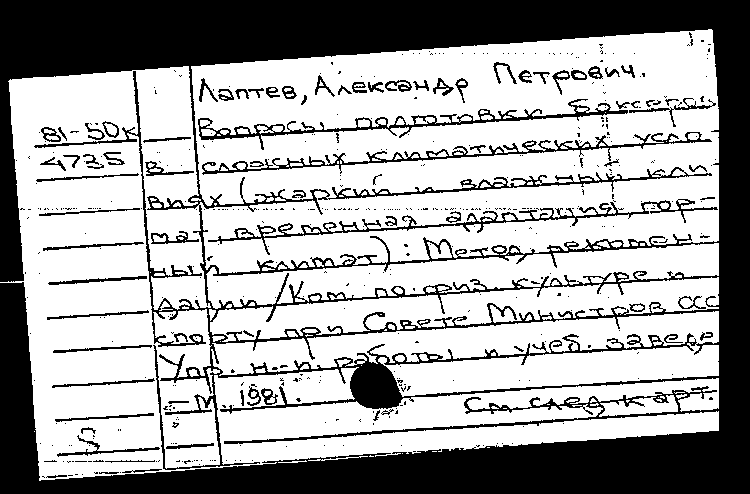 Лаптев, Александр Петрович.
81-50к Вопросы подготовки боксеров
4735 в сложных климатических усло-
виях (жаркий и влажный кли-
мат, временная адаптация, гор-
ный климат): Метод. рекомен-
дации / Ком. по физ. культуре и
спорту при Совете Министров СССР
Упр. н.-и. работы и учеб. заведе
- М., 1981.
См след карт.
S